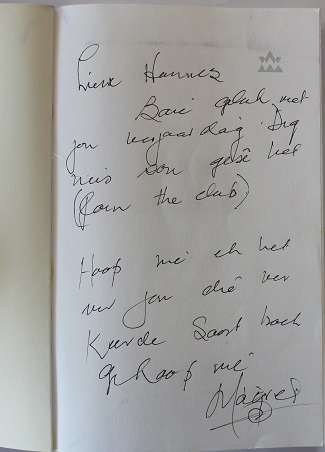 Liewe Hannes
Baie geluk met
jou verjaardag. Dig
neis son gesê het
(Join the club)
Hoop nie ek het
vir jou dié ver
Keerde Soort boek
gekoop nie
Magriet